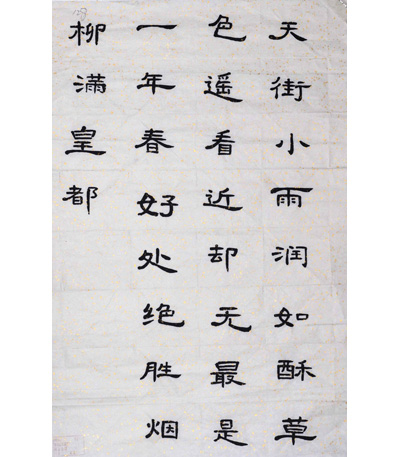 天街小雨润如酥草
色遥看近却无最是
一年春好处绝胜烟
柳满皇都